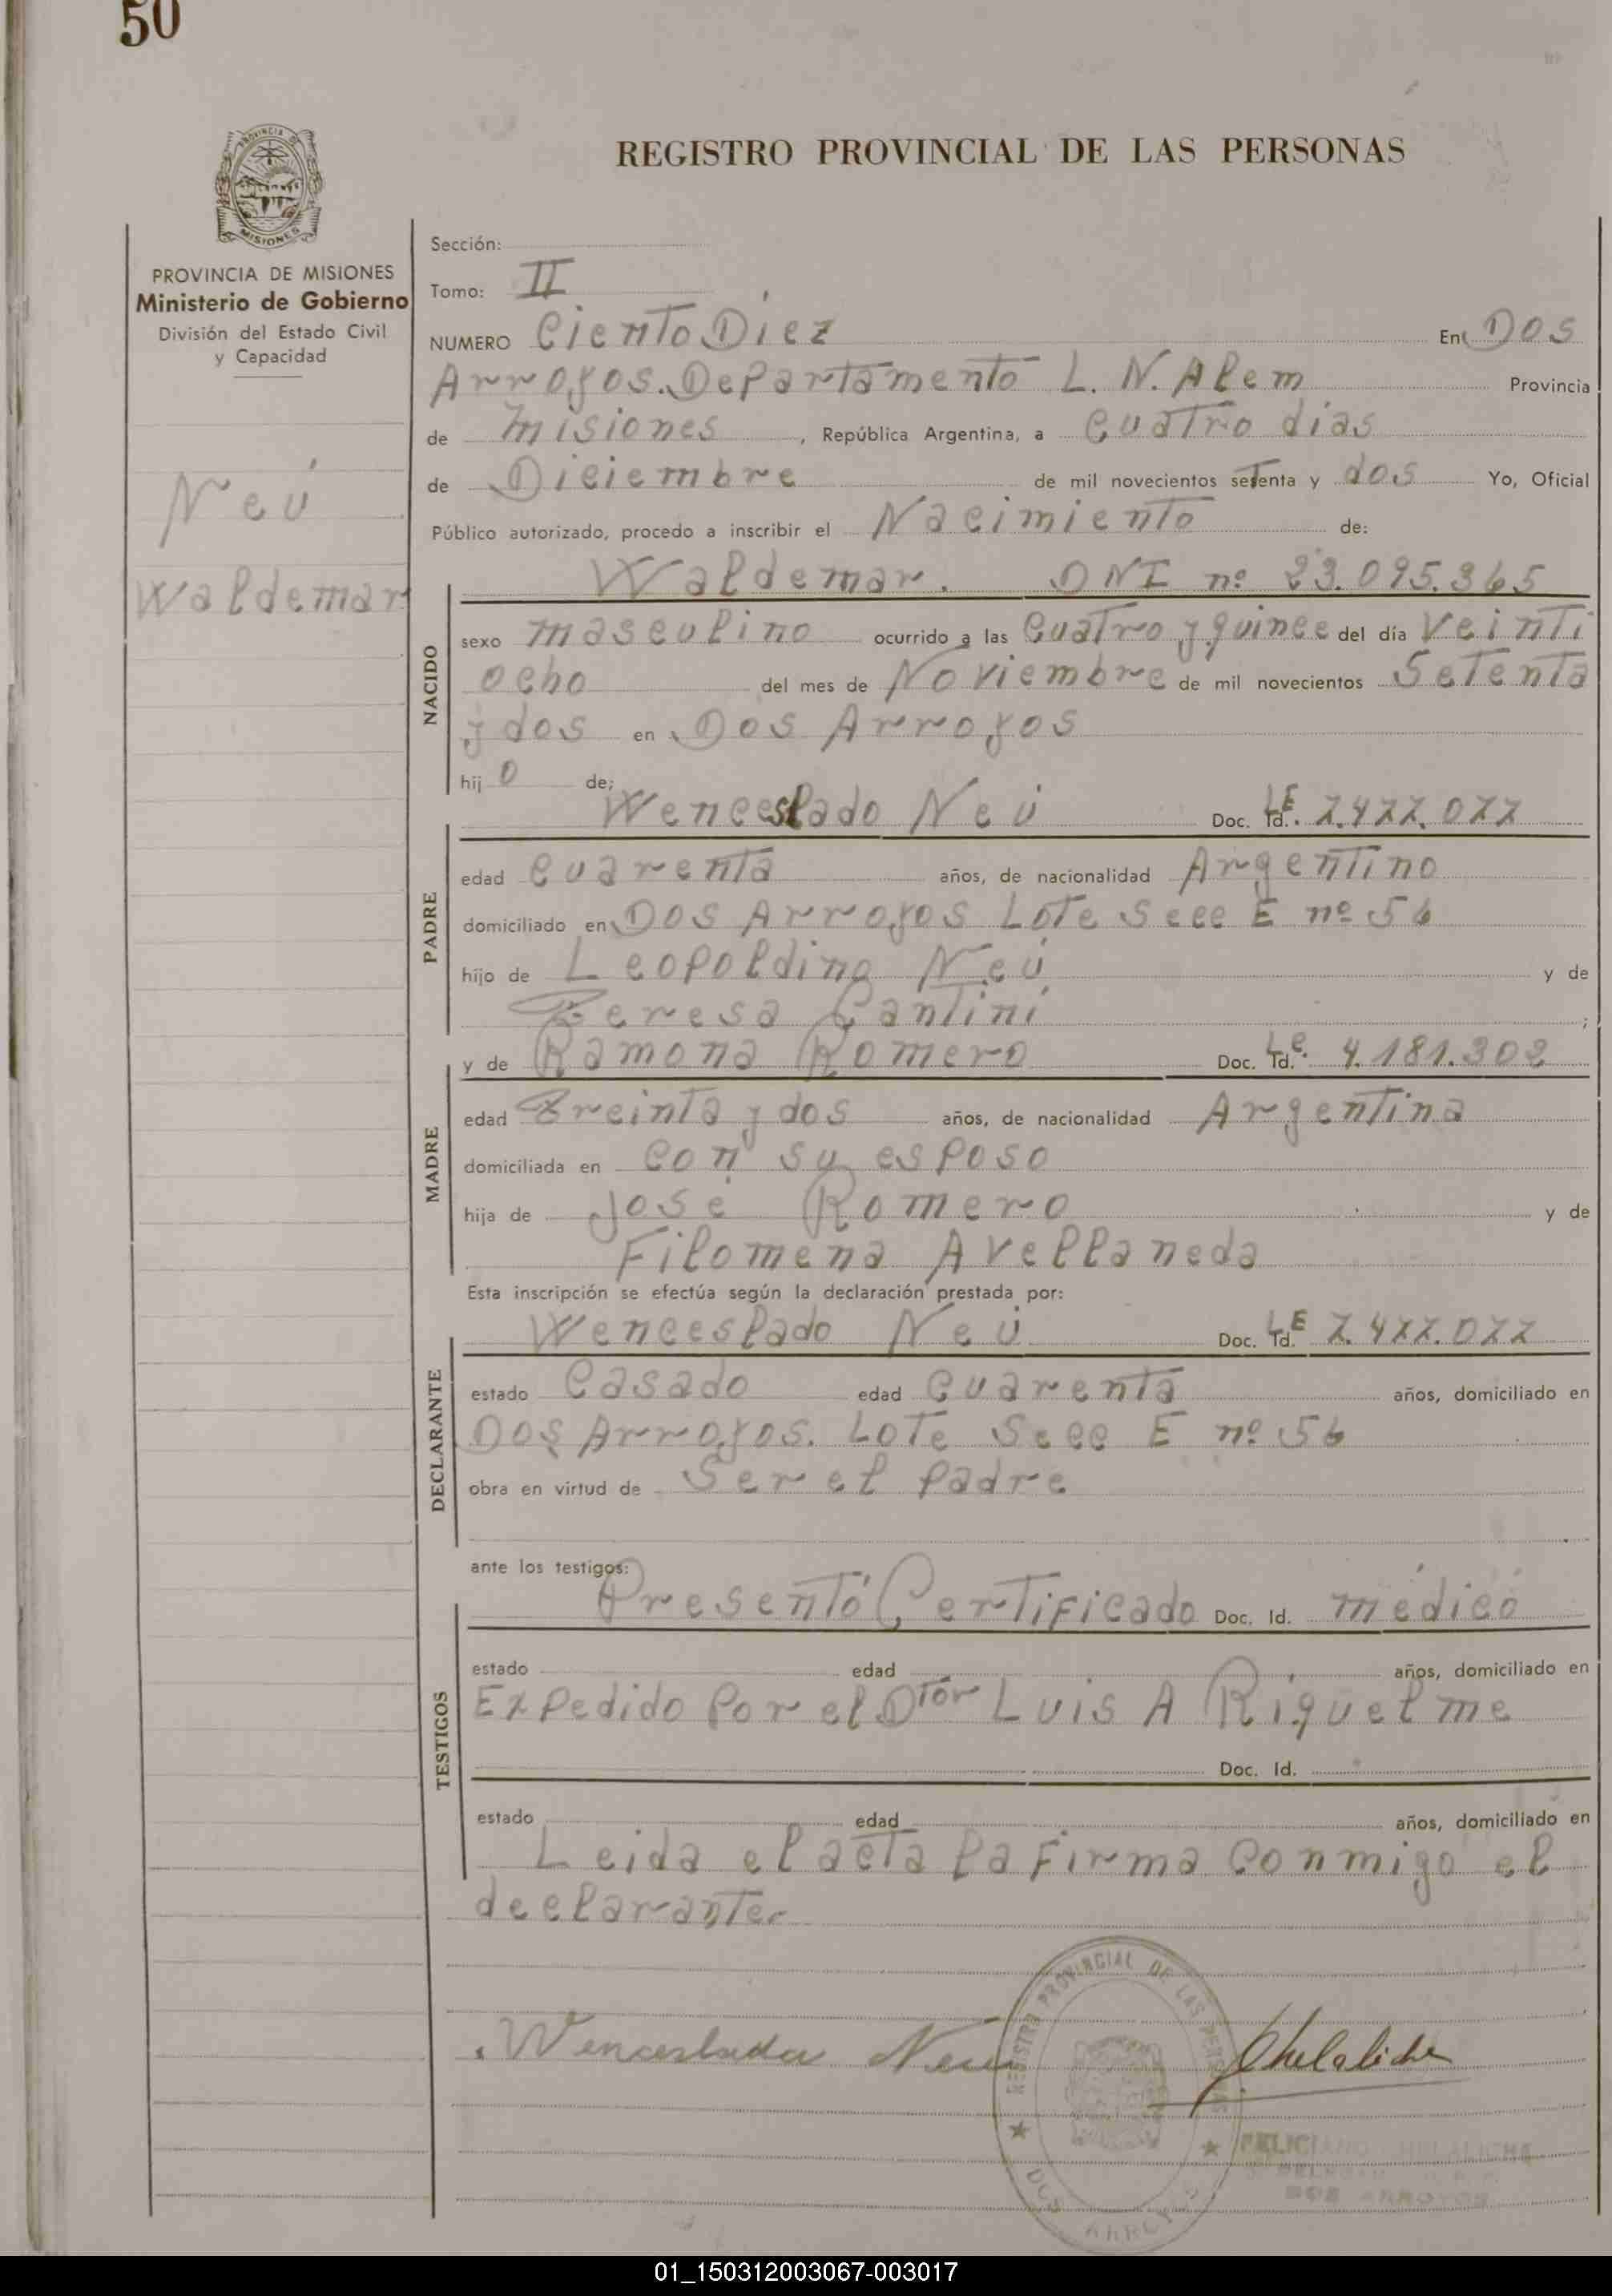 50
REGISTRO PROVINCIAL DE LAS PERSONAS
PROVINCIA DE MISIONES
Ministerio de Gobierno
División del Estado Civil
y Capacidad
Neú
Waldemar
Sección:
Tomo: II
NUMERO Ciento Diez En Dos
Arroyos. Departamento L. N. Alem Provincia
de Misiones, República Argentina, a Cuatro días
de Diciembre de mil novecientos setenta y dos Yo, Oficial
Público autorizado, procedo a inscribir el Nacimiento de:
Waldemar. DNI nº 23.095.365
NACIDO
sexo masculino ocurrido a las Cuatro y quince del día Veinti
ocho del mes de Noviembre de mil novecientos Setenta
y dos en Dos Arroyos
hij o de;
Wenceslado Neú Doc. Id. LE 7.477.077
PADRE
edad Cuarenta años, de nacionalidad Argentino
domiciliado en Dos Arroyos Lote Secc E nº 56
hijo de Leopoldino Neú y de
Teresa Cantini ;
y de Ramona Romero Doc. Id. Le. 4.181.302
MADRE
edad Treinta y dos años, de nacionalidad Argentina
domiciliada en con su esposo
hija de José Romero y de
Filomena Avellaneda
Esta inscripción se efectúa según la declaración prestada por:
Wenceslado Neú Doc. Id. LE 7.477.077
DECLARANTE
estado Casado edad Cuarenta años, domiciliado en
Dos Arroyos. Lote Secc E nº 56
obra en virtud de Ser el padre
ante los testigos:
Presentó Certificado Doc. Id. médico
TESTIGOS
estado edad años, domiciliado en
Expedido por el Dtor Luis A Riquelme
Doc. Id.
estado edad años, domiciliado en
Leida el acta la firma conmigo el
declarante.
Wenceslado Neu Chelaliche
REGISTRO PROVINCIAL DE LAS PERSONAS
DOS ARROYOS
FELICIANO CHELALICHE
DOS ARROYOS
01_150312003067-003017